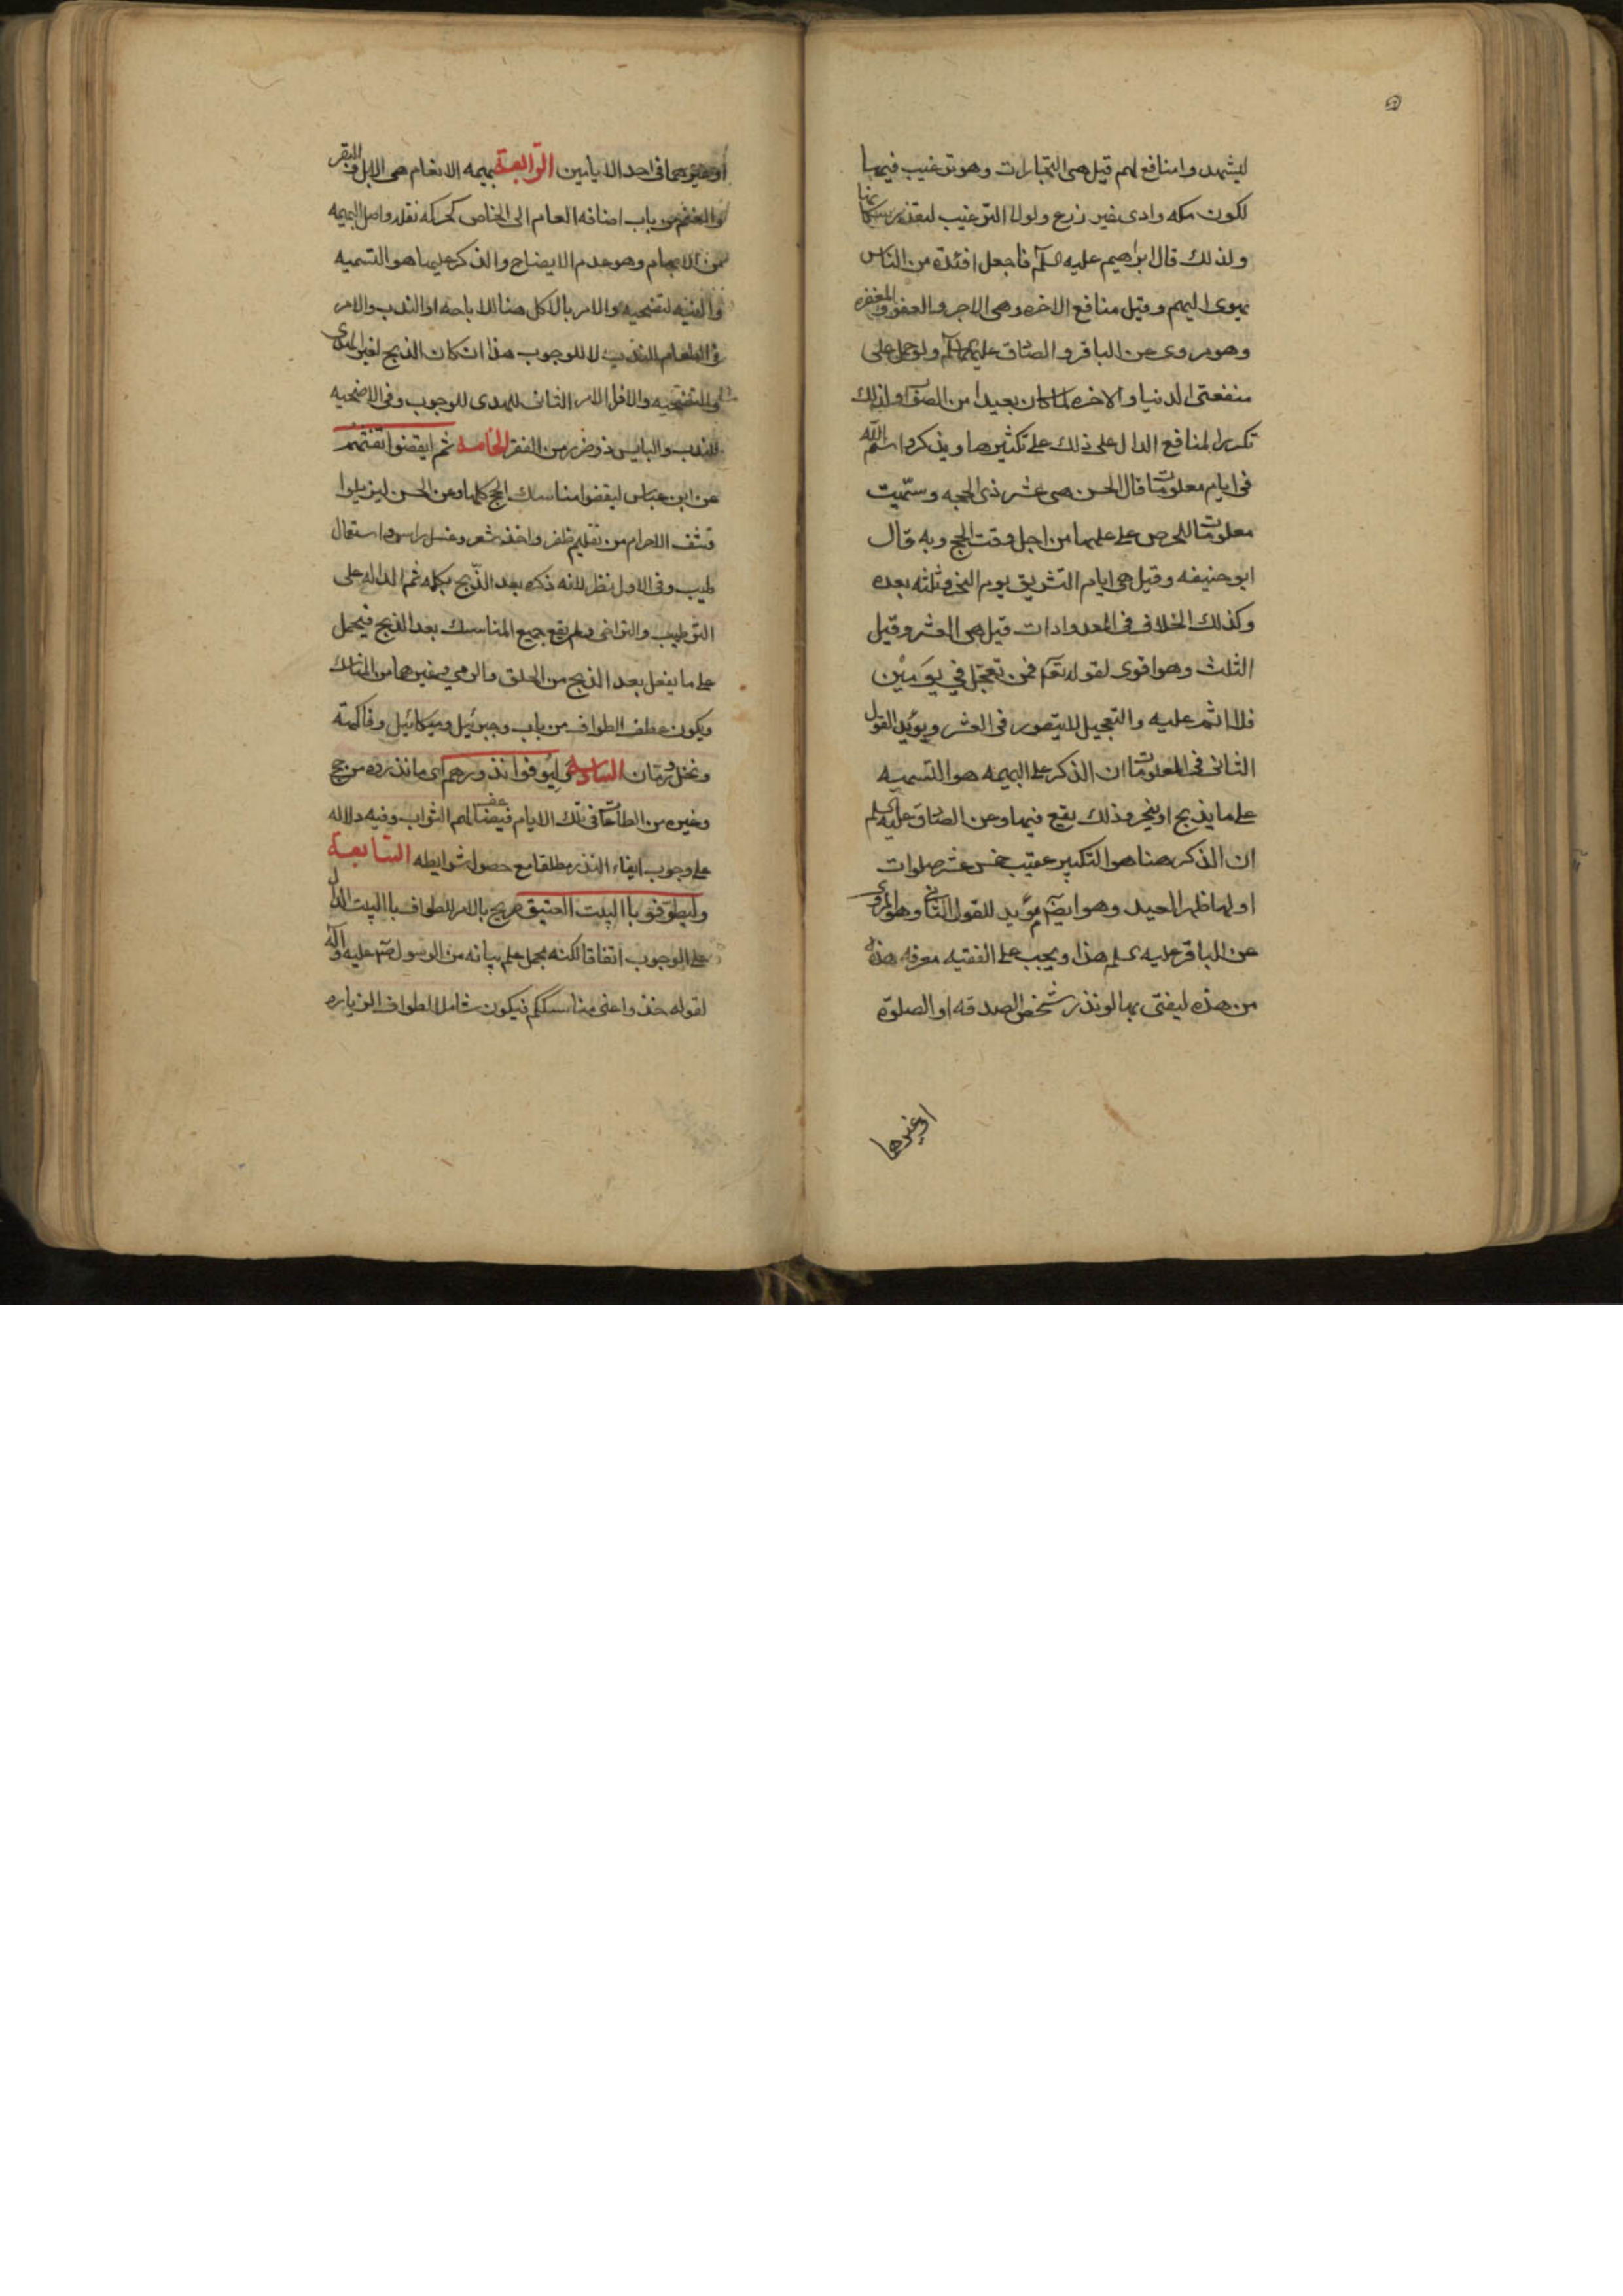 ليشهدوا منافع لهم قيل هى التجارات وهو ترغيب فيها
لكون مكه وادى بغير زرع ولولا الترغيب لتعذر سكانها
ولذلك قال ابراهيم عليه السلم فاجعل افئدة من الناس
تهوى اليهم وقيل منافع الاخره وهى الاجر والعفو والمغفره
وهو مروى عن الباقر والصادق عليهما السلم ولو حمل على
منفعتى الدنيا والاخره لما كان بعيدا من الصواب ولذلك
نكر المنافع الدال على ذلك على تكثيرها ويذكروا اسم الله
فى ايام معلومات قال الحسن هى عشر ذى الحجه وسميت
معلومات للحرص على علمها من اجل وقت الحج وبه قال
ابو حنيفه وقيل هى ايام التشريق يوم النحر وثلثه بعده
وكذلك الخلاف فى المعدودات قيل هى العشر وقيل
الثلث وهو اقوى لقوله تعا فمن تعجل في يومين
فلا اثم عليه والتعجيل لا يتصور فى العشر ويؤيد القول
الثانى فى المعلومات ان الذكر على البهيمه هو التسميه
على ما يذبح او ينحر وذلك يقع فيها وعن الصادق عليه السلم
ان الذكر هنا هو التكبير عقيب خمس عشر صلوات
اولها ظهر العيد وهو ايضا مؤيد للقول الثانى وهو المروى
عن الباقر عليه السلم هذا ويجب على الفقيه معرفه هذه
من هذه ليفتى بها لو نذر شخص الصدقه او الصلوة
او غيرها
او غيرهما فى احد الايامين الرابعة بهيمه الانعام هى الابل والبقر
والغنم من باب اضافه العام الى الخاص كحركه نقله واصل البهيمه
من الابهام وهو عدم الايضاح والذكر عليها هو التسميه
والنيه لتضحيه والامر بالاكل هنا للاباحه او الندب والامر
فى الطعام للندب لا للوجوب هذا ان كان الذبح لغير الهدى
والتضحيه والا فلا الامر الثانى للهدى للوجوب وفى الاضحيه
للندب والبايس ذو ضرر من الفقر الخامسة ثم ليقضوا تفثهم
عن ابن عباس ليقضوا مناسك الحج كلها وعن الحسن ليزيلوا
قشف الاحرام من تقليم ظفر واخذ شعر وغسل راس واستعمال
طيب وفى الاول نظر لانه ذكره بعد الذبح بكلمه ثم الداله على
الترتيب والتراخى ولم يقع جميع المناسك بعد الذبح فيحمل
على ما يفعل بعد الذبح من الحلق والرمي وغيرها من المناسك
ويكون عطف الطواف من باب وجبرئيل وميكائيل وفاكهة
ونخل ورمان السادسة وليوفوا نذورهم اى ما نذروه من حج
وغيره من الطاعات فى تلك الايام فيضاعف لهم الثواب وفيه دلاله
على وجوب ايفاء النذر مطلقا مع حصول شرايطه السابعة
وليطوفوا بالبيت العتيق صريح بالامر للطواف بالبيت الدال
على الوجوب اتفاقا لكنه مجمل علم بيانه من الرسول صلى عليه وآله
لقوله خذوا عنى مناسككم فيكون شاملا لطواف الزياره